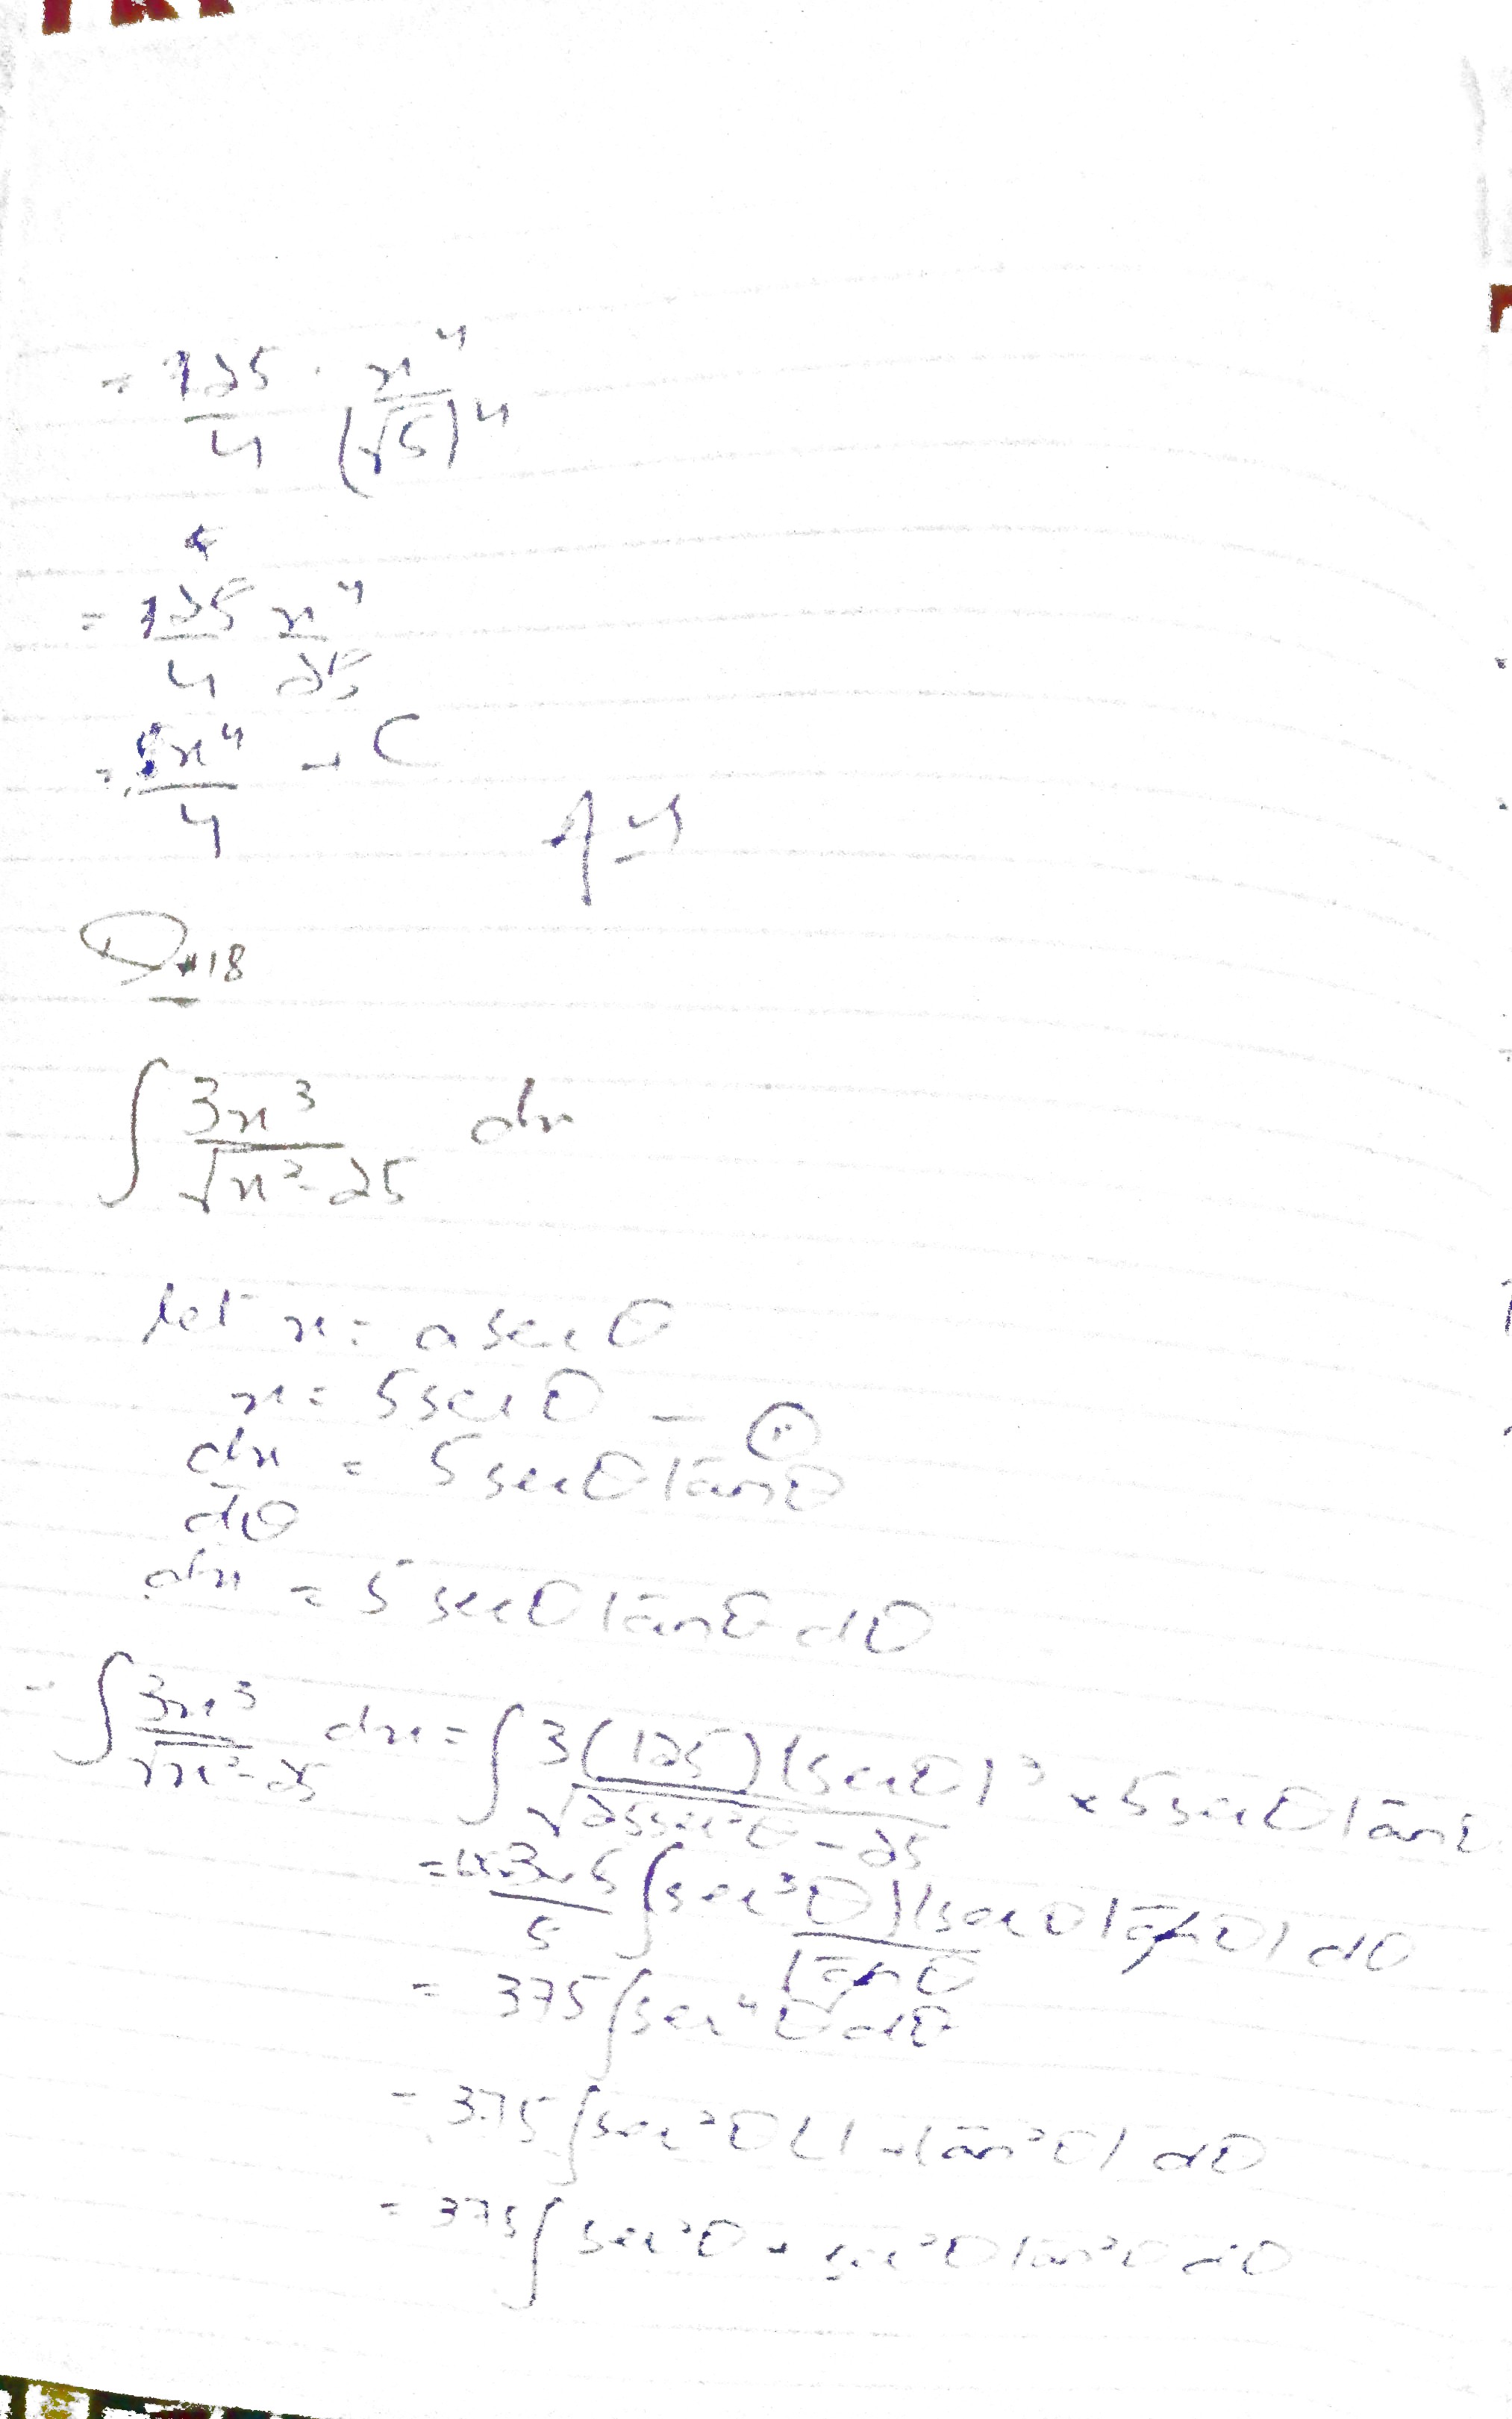 = 125/4 · x⁴/(√5)⁴
= 125/4 x⁴/25
= 5x⁴/4 + C
Q#18
∫ 3x³/√x²-25 dx
let x = a sec θ
x = 5 sec θ — (i)
dx/dθ = 5 sec θ tan θ
dx = 5 sec θ tan θ dθ
= ∫ 3x³/√x²-25 dx = ∫ 3(125)(sec θ)³/√25sec²θ - 25 × 5 sec θ tan θ
∫(sec³θ)(sec θ tan θ) dθ/tan θ
= 375 ∫ sec⁴θ dθ
= 375 ∫ sec²θ (1 + tan²θ) dθ
= 375 ∫ sec²θ + sec²θ tan²θ dθ